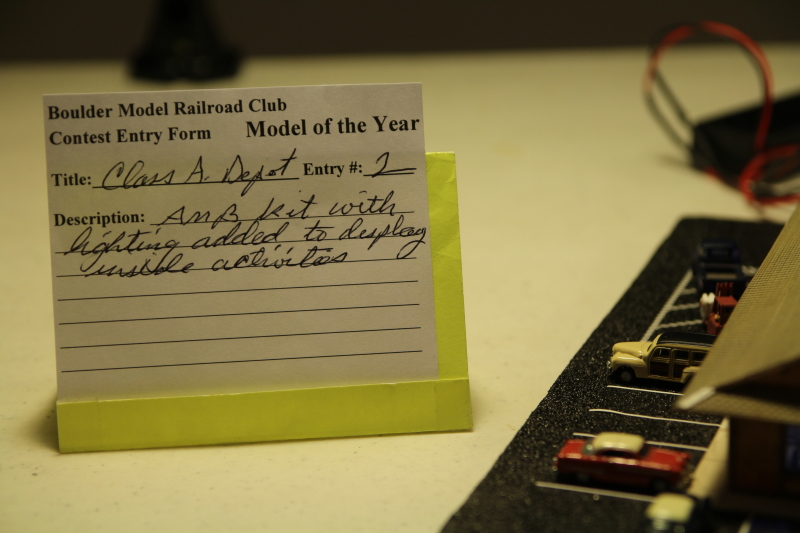 Boulder Model Railroad Club
Contest Entry Form Model of the Year
Title: Class A. Depot Entry #: 2
Description: AMB kit with
lighting added to display
inside activities